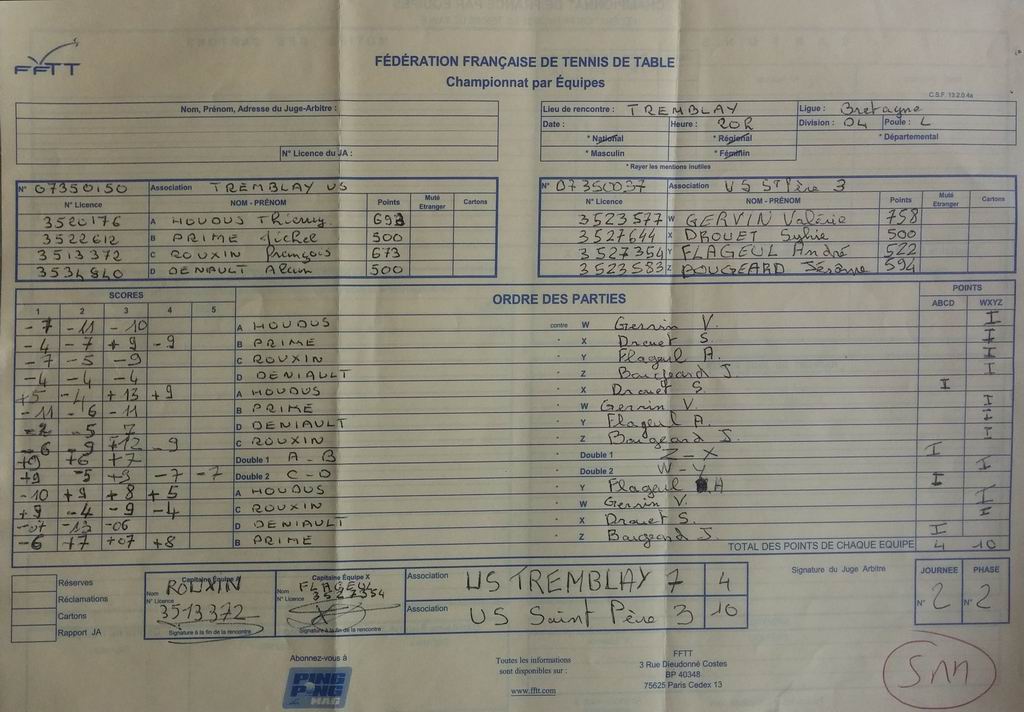 FFTT
FÉDÉRATION FRANÇAISE DE TENNIS DE TABLE
Championnat par Équipes
C.S.F. 13.2.0 4a
Nom, Prénom, Adresse du Juge-Arbitre :
N° Licence du JA :
Lieu de rencontre : TREMBLAY Ligue : Bretagne
Date : Heure : 20h Division : D4 Poule : L
* National * Régional * Départemental
* Masculin * Féminin
* Rayer les mentions inutiles
N° 07350150 Association TREMBLAY US
N° Licence NOM - PRÉNOM Points Muté Etranger Cartons
3520176 A HOUDUS Thierry 693
3522612 B PRIME Michel 500
3513372 C ROUXIN François 673
3534840 D DENIAULT Alain 500
N° 07350037 Association US St Père 3
N° Licence NOM - PRÉNOM Points Muté Etranger Cartons
3523577 W GERVIN Valérie 758
3527644 X DROUET Sylvie 500
3527354 Y FLAGEUL André 522
3523583 Z BOUGEARD Jérôme 594
SCORES ORDRE DES PARTIES POINTS
1 2 3 4 5 ABCD WXYZ
-7 -11 -10 A HOUDUS contre W Gervin V. I
-4 -7 +9 -9 B PRIME X Drouet S. I
-7 -5 -9 C ROUXIN Y Flageul A. I
-4 -4 -4 D DENIAULT Z Bougeard J. I
+5 -4 +13 +9 A HOUDUS X Drouet S. I
-11 -6 -11 B PRIME W Gervin V. I
-2 -5 7 D DENIAULT Y Flageul A. I
-6 -9 +12 -9 C ROUXIN Z Bougeard J. I
+9 +6 +7 Double 1 A - B Double 1 Z - X I
+9 -5 +9 -7 -7 Double 2 C - D Double 2 W - Y I
-10 +9 +8 +5 A HOUDUS Y Flageul A I
+9 -4 -9 -4 C ROUXIN W Gervin V. I
-07 -13 -06 D DENIAULT X Drouet S. I
-6 +7 +07 +8 B PRIME Z Bougeard J. I
TOTAL DES POINTS DE CHAQUE EQUIPE 4 10
Réserves
Réclamations
Cartons
Rapport JA
Capitaine Équipe A
Nom ROUXIN
N° Licence
3513372
Signature à la fin de la rencontre
Capitaine Équipe X
Nom FLAGEUL
N° Licence
Signature à la fin de la rencontre
Association US TREMBLAY 7 4
Association US Saint Père 3 10
Signature du Juge Arbitre
JOURNEE PHASE
N° 2 N° 2
Abonnez-vous à
PING PONG MAG
Toutes les informations
sont disponibles sur :
www.fftt.com
FFTT
3 Rue Dieudonné Costes
BP 40348
75625 Paris Cedex 13